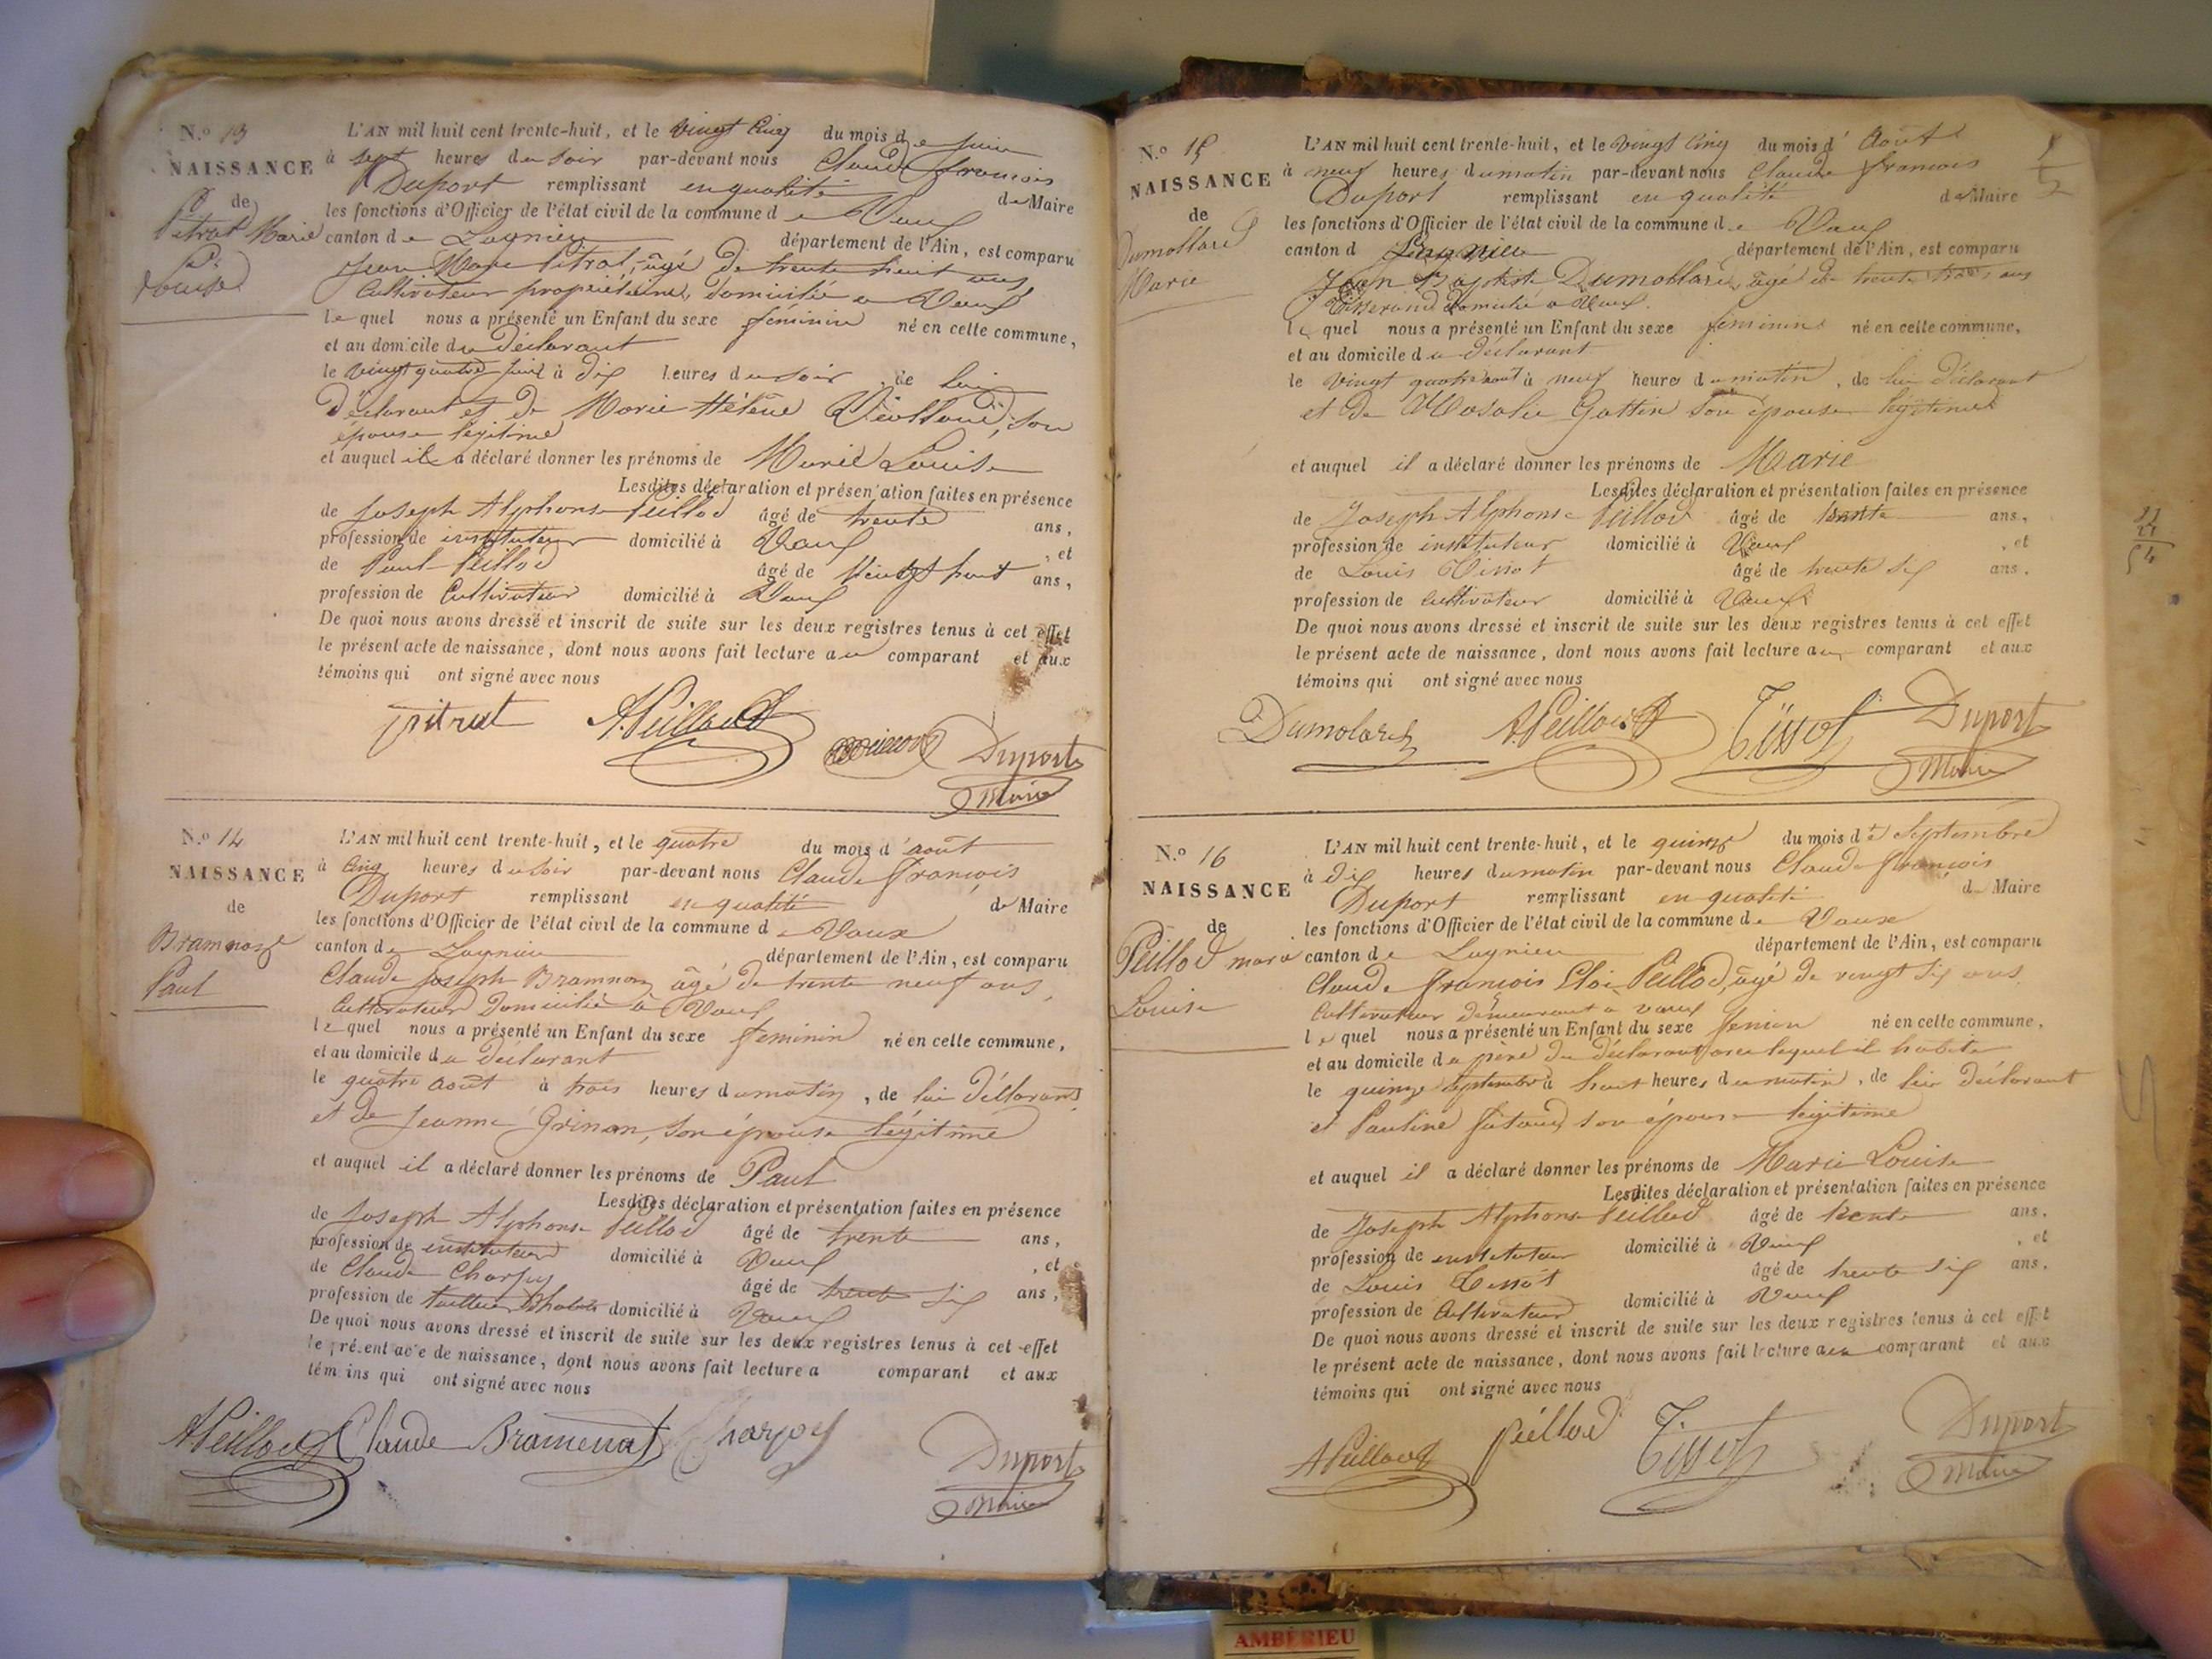 N.o 13
NAISSANCE
de
Pitrat Marie
Louise
L'AN mil huit cent trente-huit, et le vingt cinq du mois de juin
à sept heures du soir par-devant nous Claude françois
Duport remplissant en qualité de Maire
les fonctions d'Officier de l'état civil de la commune de Vaux
canton de Lagnieu département de l'Ain, est comparu
Jean Marie Pitrat, âgé de trente huit ans,
Cultivateur propriétaire, domicilié a Vaux
lequel nous a présenté un Enfant du sexe feminin né en cette commune,
et au domicile du déclarant
le vingt quatre juin à dix heures du soir, de lui
Déclarant et de Marie Hélène son
épouse legitime
et auquel il a déclaré donner les prénoms de Marie Louise
Lesdites déclaration et présentation faites en présence
de Joseph Alphonse Peillod âgé de trente ans,
profession de instituteur domicilié à Vaux, et
de Paul Peillod âgé de ans,
profession de Cultivateur domicilié à Vaux
De quoi nous avons dressé et inscrit de suite sur les deux registres tenus à cet effet
le présent acte de naissance, dont nous avons fait lecture au comparant et aux
témoins qui ont signé avec nous
pitrat A. Peilloud Duport
Maire
N.o 14
NAISSANCE
de
Paul
L'AN mil huit cent trente-huit, et le quatre du mois d'août
à cinq heures du soir par-devant nous Claude François
Duport remplissant en qualité de Maire
les fonctions d'Officier de l'état civil de la commune de Vaux
canton de Lagnieu département de l'Ain, est comparu
Claude Joseph âgé de trente neuf ans,
Cultivateur Domicilié à Vaux
lequel nous a présenté un Enfant du sexe feminin né en cette commune,
et au domicile du déclarant
le quatre août à trois heures du matin, de lui Déclarant
et de Jeanne Grinan, son épouse légitime
et auquel il a déclaré donner les prénoms de Paul
Lesdites déclaration et présentation faites en présence
de Joseph Alphonse Peillod âgé de trente ans,
profession de instituteur domicilié à Vaux, et
de Claude Charpy âgé de trente six ans,
profession de tailleur d'habits domicilié à Vaux
De quoi nous avons dressé et inscrit de suite sur les deux registres tenus à cet effet
le présent acte de naissance, dont nous avons fait lecture a comparant et aux
témoins qui ont signé avec nous
A Peilloud Claude Bramenat Duport
Maire
N.o 15
NAISSANCE
de
Dumollard
Marie
L'AN mil huit cent trente-huit, et le vingt cinq du mois d'Août
à neuf heures du matin par-devant nous Claude françois
Duport remplissant en qualité de Maire
les fonctions d'Officier de l'état civil de la commune de Vaux
canton d Lagnieu département de l'Ain, est comparu
Jean Baptiste Dumollard, âgé de trente trois ans
Tisserand domicilié a Vaux.
lequel nous a présenté un Enfant du sexe feminin né en cette commune,
et au domicile du déclarant
le vingt quatre août à neuf heures du matin, de lui déclarant
et de Rosalie Gottin son épouse légitime
et auquel il a déclaré donner les prénoms de Marie
Lesdites déclaration et présentation faites en présence
de Joseph Alphonse Peillod âgé de trente ans,
profession de instituteur domicilié à Vaux, et
de Louis Tissot âgé de trente six ans,
profession de cultivateur domicilié à Vaux
De quoi nous avons dressé et inscrit de suite sur les deux registres tenus à cet effet
le présent acte de naissance, dont nous avons fait lecture au comparant et aux
témoins qui ont signé avec nous
Dumolard A. Peilloud Tissot Duport
Maire
N.o 16
NAISSANCE
de
Peillod marie
Louise
L'AN mil huit cent trente-huit, et le quinze du mois de Septembre
à dix heures du matin par-devant nous Claude françois
Duport remplissant en qualité de Maire
les fonctions d'Officier de l'état civil de la commune de Vaux
canton de Lagnieu département de l'Ain, est comparu
Claude françois Eloi Peillod, âgé de vingt six ans,
Cultivateur demeurant a vaux
lequel nous a présenté un Enfant du sexe né en cette commune,
et au domicile du père du déclarant avec lequel il habite
le quinze septembre à heures du matin, de lui déclarant
et Pauline son épouse légitime
et auquel il a déclaré donner les prénoms de Marie Louise
Lesdites déclaration et présentation faites en présence
de Joseph Alphonse Peillod âgé de trente ans,
profession de instituteur domicilié à Vaux, et
de Louis Tissot âgé de trente six ans,
profession de Cultivateur domicilié à Vaux
De quoi nous avons dressé et inscrit de suite sur les deux registres tenus à cet effet
le présent acte de naissance, dont nous avons fait lecture au comparant et aux
témoins qui ont signé avec nous
A Peilloud peillod Tissot Duport
Maire
AMBÉRIEU